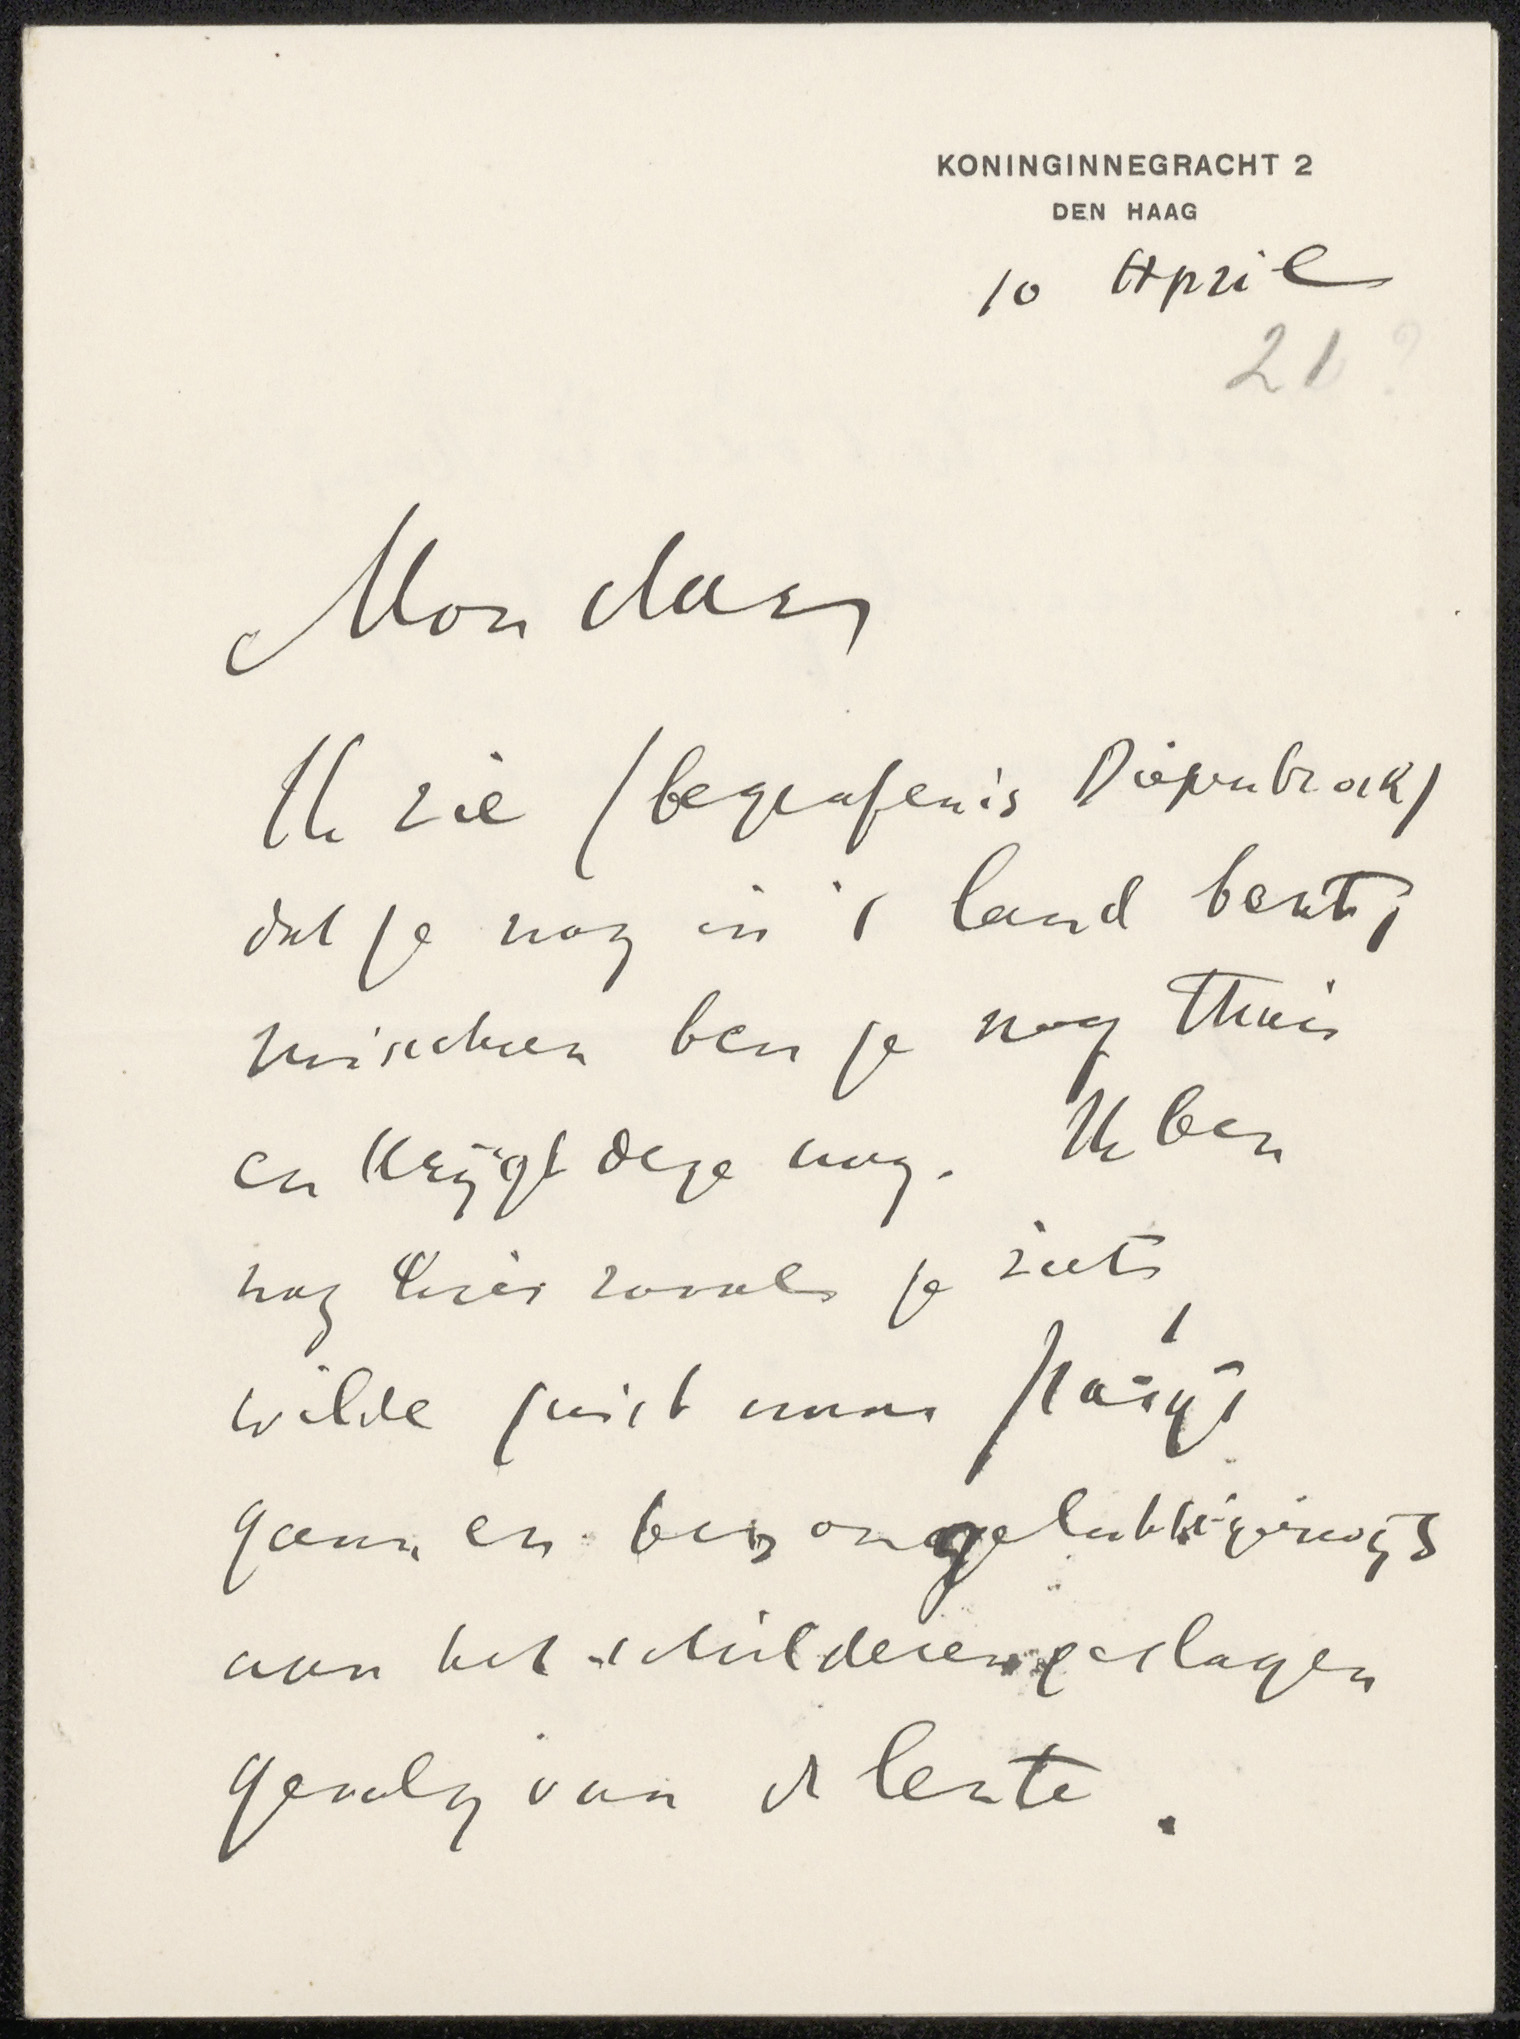 KONINGINNEGRACHT 2
DEN HAAG
10 April
21 ?
Mon cher,
Ik zie (begrafenis Diepenbrock)
dat je nog in 't land bent;
misschien ben je nog thuis
en krijgt deze nog. Ik ben
nog hier zooals je ziet,
wilde juist naar Parijs
gaan en ben ongelukkigerwijs
aan het schilderen geslagen
gevolg van de lente.